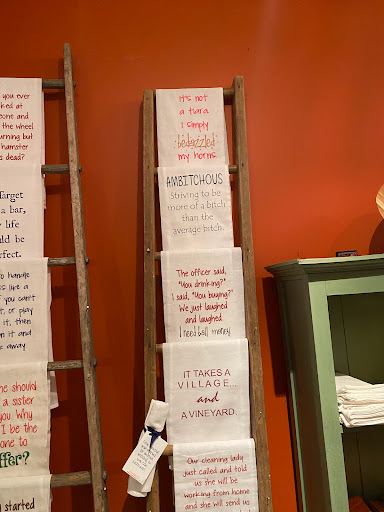 you ever
ked at
eone and
the wheel
urning but
hamster
s dead?
Target
a bar,
y life
uld be
rfect.
to handle
s like a
f you can't
t, or play
it, then
n it and
k away
he should
a sister
you. Why
I be the
one to
ffer?
started
it's not
a tiara
I simply
bedazzled
my horns.
AMBITCHOUS
striving to be
more of a bitch
than the
average bitch.
The officer said,
"You drinking?"
I said, "You buying?"
We just laughed
and laughed.
I need bail money.
IT TAKES A
VILLAGE...
and
A VINEYARD.
Our cleaning lady
just called and told
us she will be
working from home
and she will send us